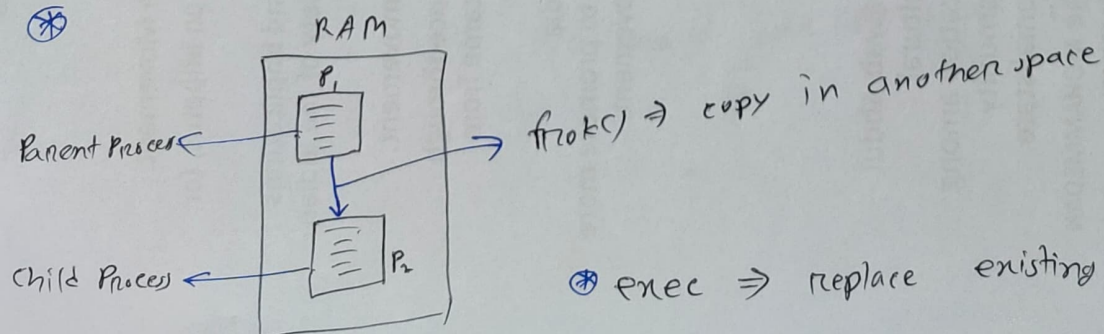 RAM
P1
Parent Process
frok() ⇒ copy in another space
P2
Child Process
exec ⇒ replace existing